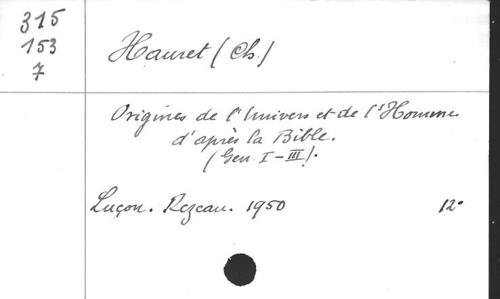 315
153
7
Hauret (Ch.)
Origines de l'Univers et de l'Homme
d'après la Bible.
(Gen. I-III).
Luçon. Rezeau. 1950 12°